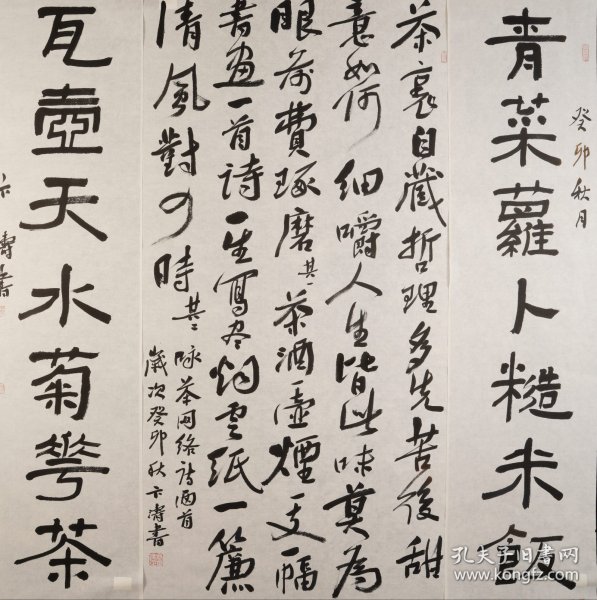 青菜蘿卜糙米飯
癸卯秋月
茶裏自藏哲理多先苦後甜
意如何細嚼人生皆此味莫為
眼前費琢磨其一茶酒一壺煙一支一幅
書畫一首詩一生寫盡灼雲紙一簾
清風對月時其二
詠茶网絡詩两首
歲次癸卯秋卞濤書
瓦壺天水菊花茶
卞濤書
孔夫子旧书网
www.kongfz.com